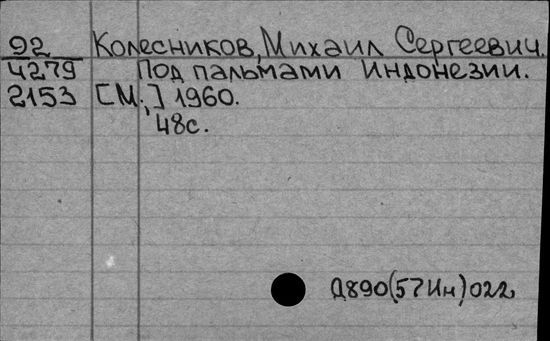 92 Колесников, Михаил Сергеевич.
4279 Под пальмами Индонезии.
2153 [М.,] 1960.
48с.
Д890(57Ин)022